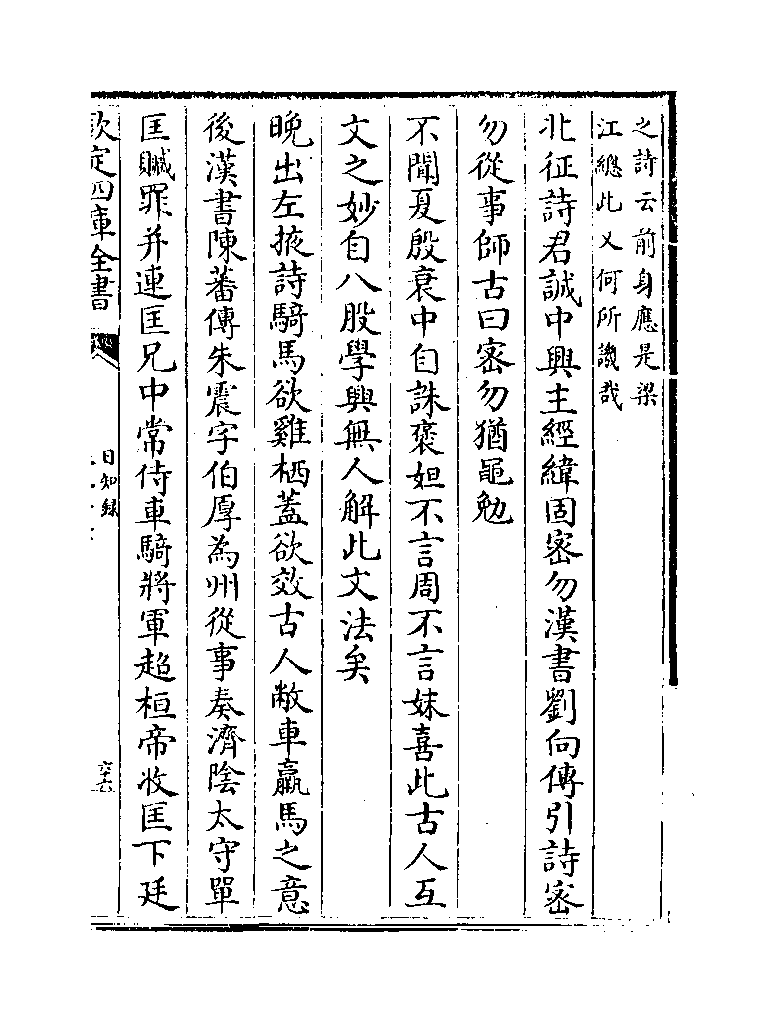 之詩云前身應是梁
江總此又何所譏哉
北征詩君誠中興主經緯固密勿漢書劉向傳引詩密
勿從事師古曰密勿猶黽勉
不聞夏殷衰中自誅襃妲不言周不言妹喜此古人互
文之妙自八股學興無人解此文法矣
晚出左掖詩騎馬欲雞栖蓋欲效古人敝車羸馬之意
後漢書陳蕃傳朱震字伯厚為州從事奏濟陰太守單
匡贓罪并連匡兄中常侍車騎將軍超桓帝收匡下廷
欽定四庫全書
日知録
六十六